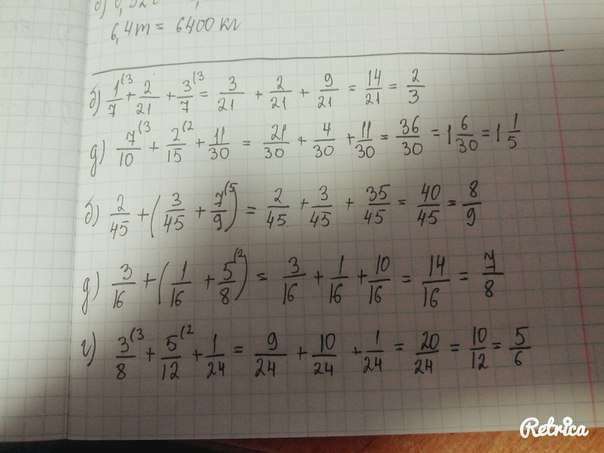 6,4т = 6400 кг
б) 1/7^(3 + 2/21 + 3/7^(3 = 3/21 + 2/21 + 9/21 = 14/21 = 2/3
д) 7/10^(3 + 2/15^(2 + 11/30 = 21/30 + 4/30 + 11/30 = 36/30 = 1 6/30 = 1 1/5
б) 2/45 + (3/45 + 7/9^(5) = 2/45 + 3/45 + 35/45 = 40/45 = 8/9
д) 3/16 + (1/16 + 5/8^(2) = 3/16 + 1/16 + 10/16 = 14/16 = 7/8
г) 3/8^(3 + 5/12^(2 + 1/24 = 9/24 + 10/24 + 1/24 = 20/24 = 10/12 = 5/6
Retrica